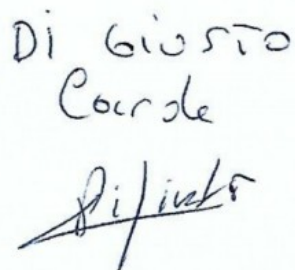 Di Giusto
Carole